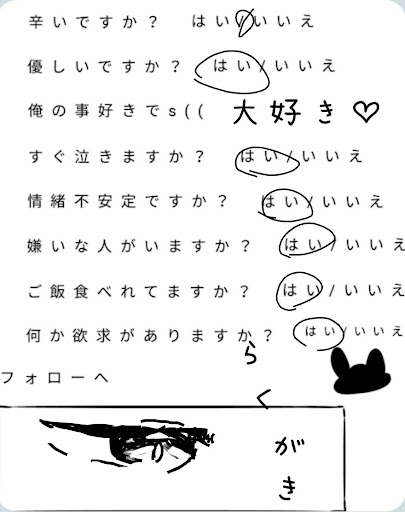 辛いですか？ はい/いいえ
優しいですか？ はい/いいえ
俺の事好きでs(( 大好き♡
すぐ泣きますか？ はい/いいえ
情緒不安定ですか？ はい/いいえ
嫌いな人がいますか？ はい/いいえ
ご飯食べれてますか？ はい/いいえ
何か欲求がありますか？ はい/いいえ
フォローへ
らくがき